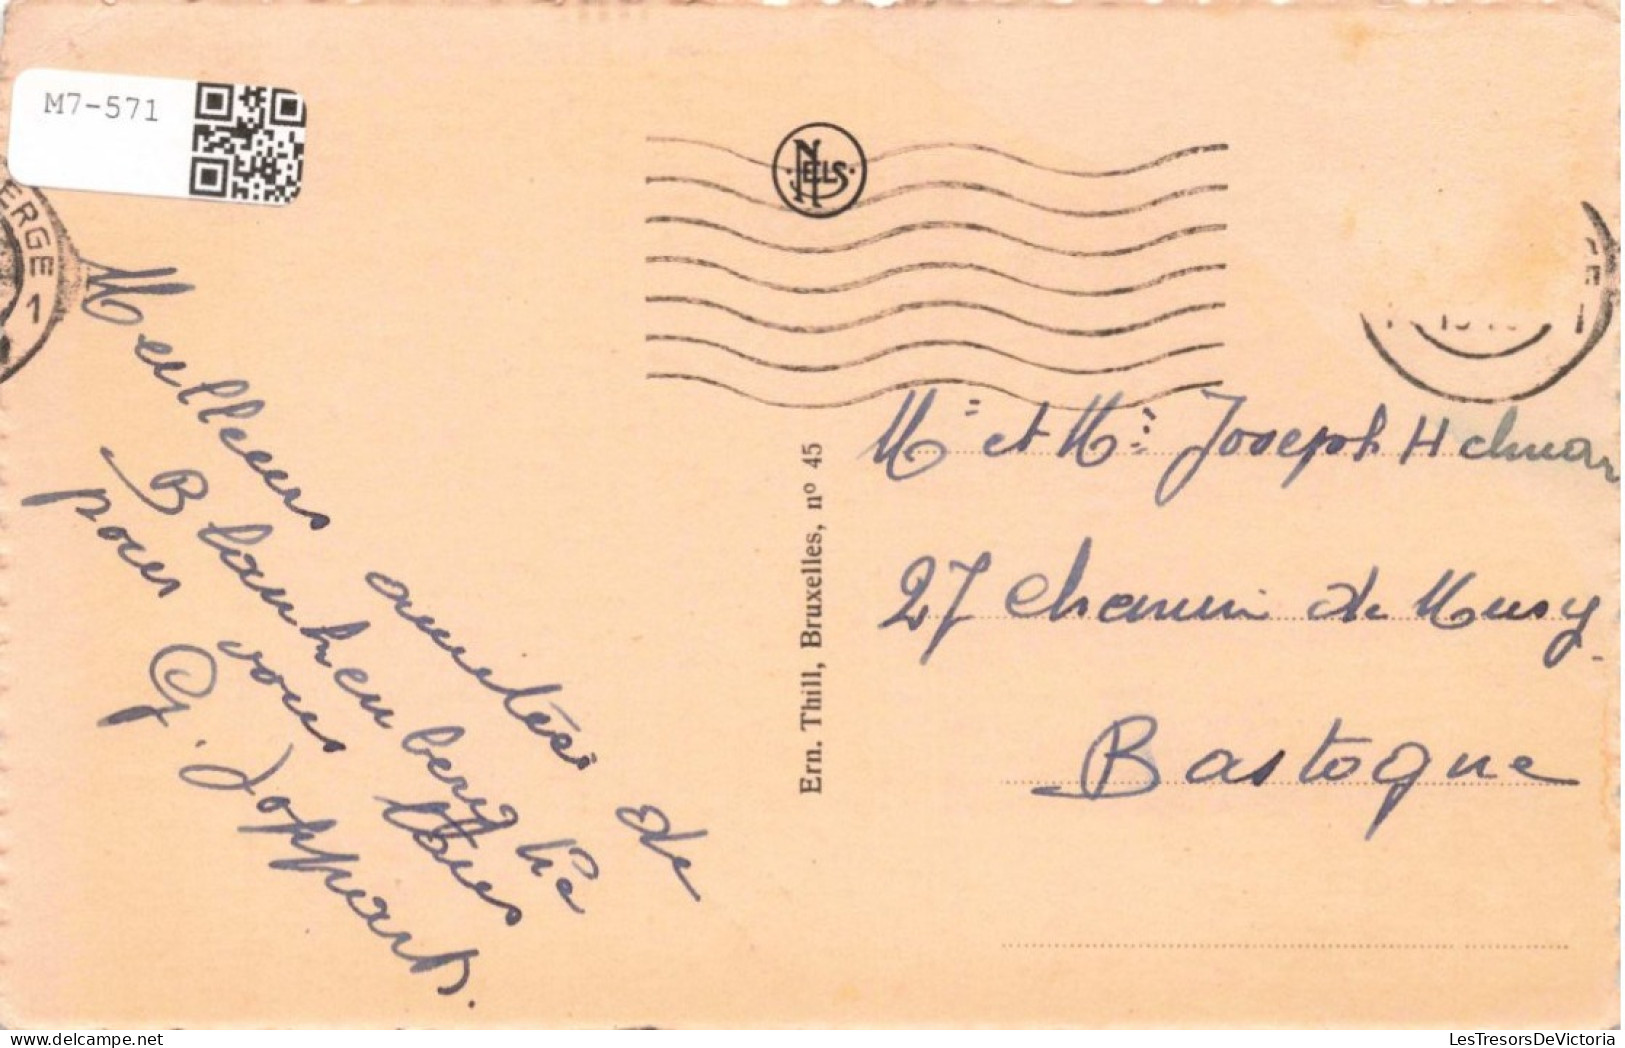 M7-571
ERGE
1
NELS
Meilleurs amitiés de
Blankenberghe
pour vous tous
G. Joppart.
Ern. Thill, Bruxelles, nº 45
Mr et Me Joseph
27 Chemin de Musy
Bastogne
LesTresorsDeVictoria